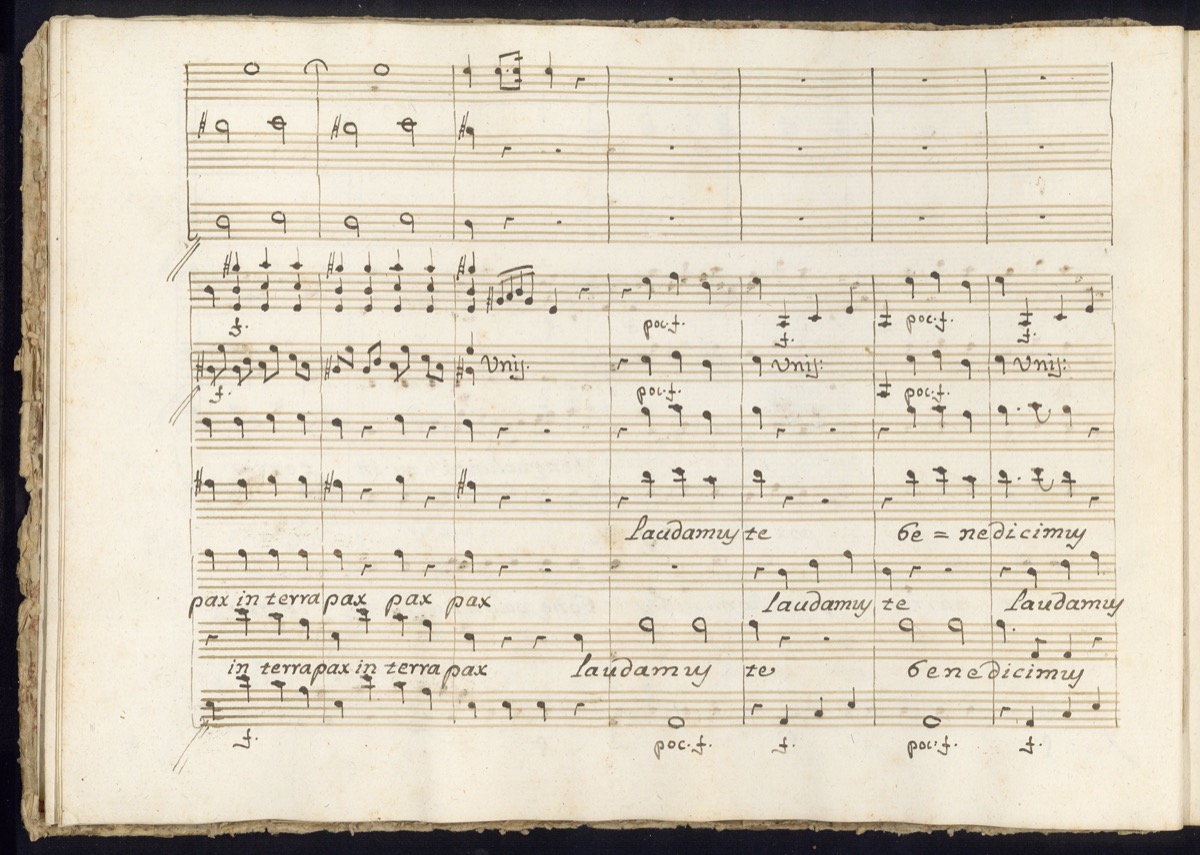 f. poc. f. f. poc. f. f.
Unis. Unis: Unis:
f. poc. f. poc. f.
laudamus te be = nedicimus
pax in terra pax pax pax laudamus te laudamus
in terra pax in terra pax laudamus te benedicimus
f. poc. f. f. poc: f. f.